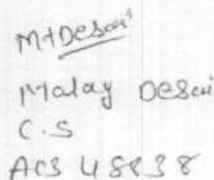 MHDesai
Malay Desai
C.S
ACS 48838